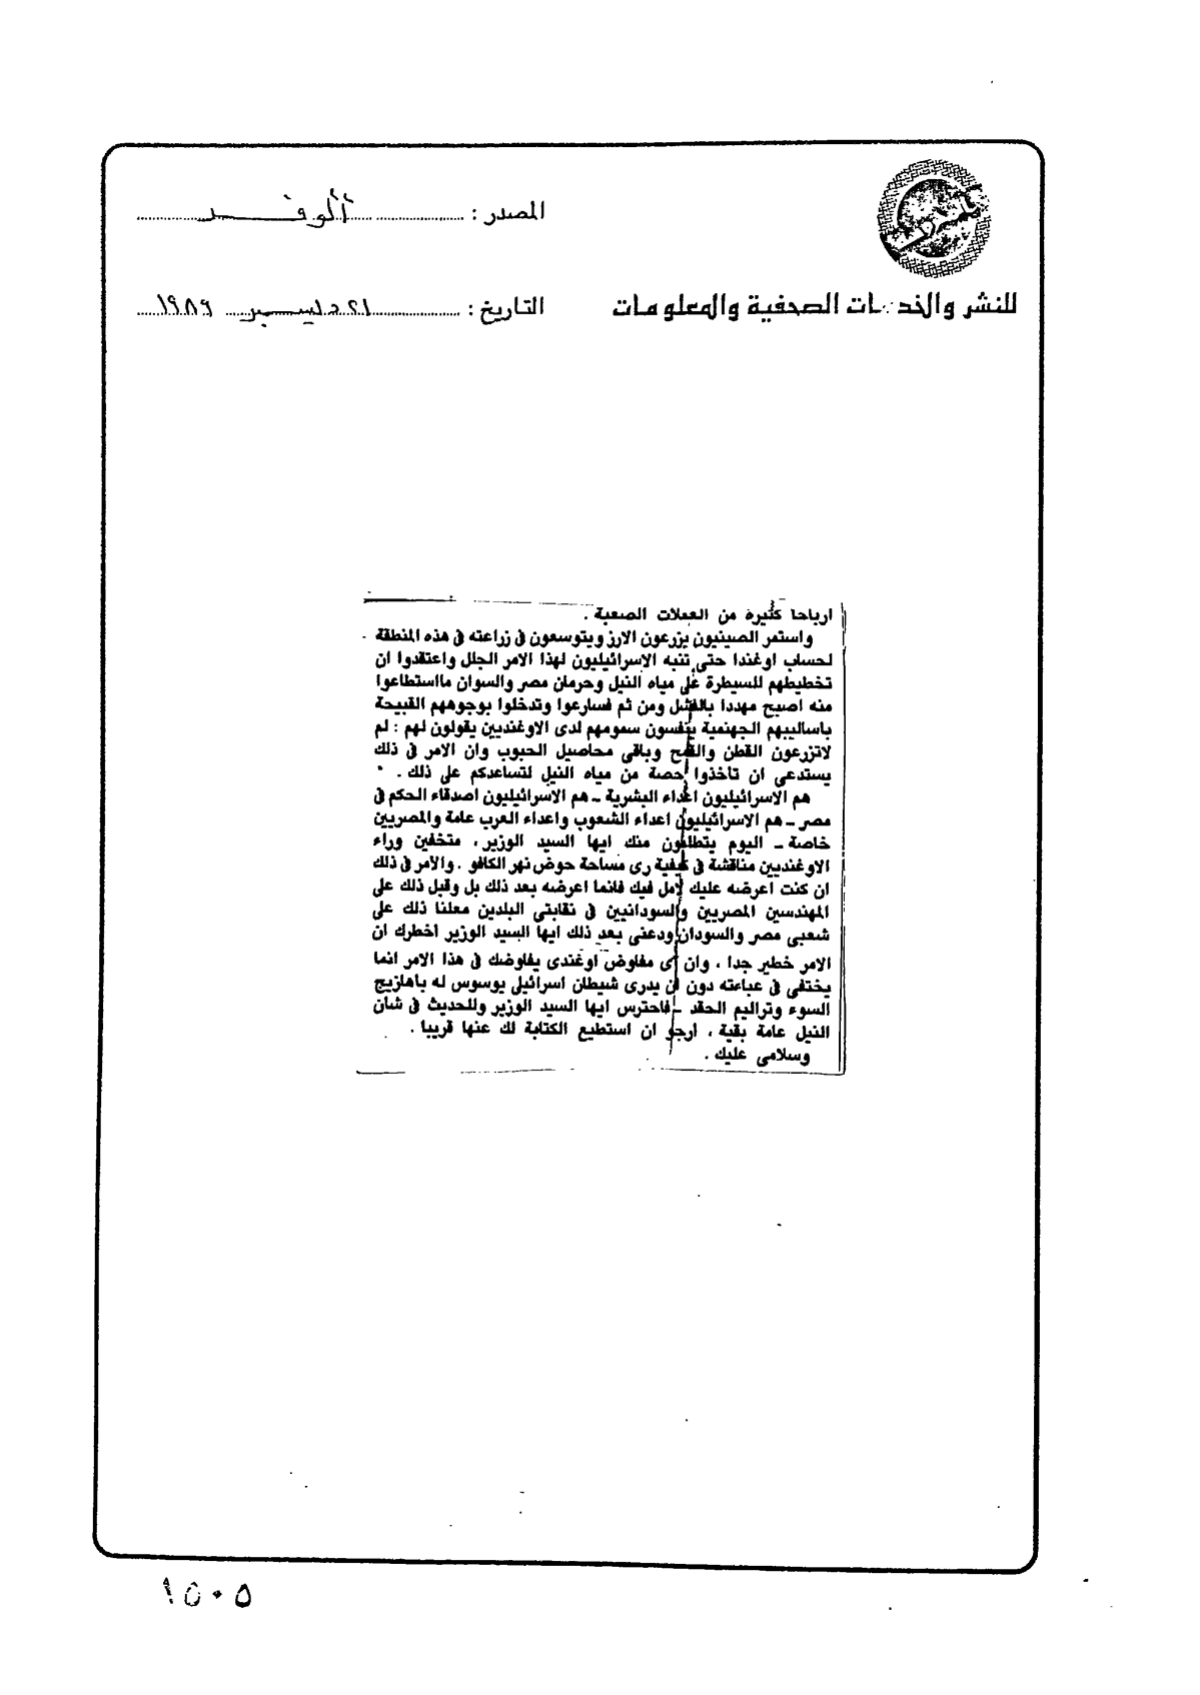 المصدر : ألوفد
للنشر والخدمات الصحفية والمعلومات
التاريخ : ٢١ ديسمبر ١٩٨٩
ارباحا كثيرة من العملات الصعبة .
واستمر الصينيون يزرعون الارز ويتوسعون فى زراعته فى هذه المنطقة
لحساب اوغندا حتى تنبه الإسرائيليون لهذا الامر الجلل واعتقدوا ان
تخطيطهم للسيطرة على مياه النيل وحرمان مصر والسوان مااستطاعوا
منه اصبح مهددا بالفشل ومن ثم فسارعوا وتدخلوا بوجوههم القبيحة
باساليبهم الجهنمية ينفسون سمومهم لدى الاوغنديين يقولون لهم : لم
لاتزرعون القطن والقمح وباقى محاصيل الحبوب وان الامر فى ذلك
يستدعى ان تاخذوا حصة من مياه النيل لتساعدكم على ذلك .
هم الاسرائيليون اعداء البشرية ـ هم الاسرائيليون اصدقاء الحكم فى
مصر ـ هم الاسرائيليون اعداء الشعوب واعداء العرب عامة والمصريين
خاصة ـ اليوم يتطلبون منك ايها السيد الوزير ، متخفين وراء
الاوغنديين مناقشة فى كيفية رى مساحة حوض نهر الكافو . والامر فى ذلك
ان كنت اعرضه عليك لامل فيك فانما اعرضه بعد ذلك بل وقبل ذلك على
المهندسين المصريين والسودانيين فى نقابتى البلدين معلنا ذلك على
شعبى مصر والسودان ودعنى بعد ذلك ايها السيد الوزير اخطرك ان
الامر خطير جدا ، وان أى مفاوض اوغندى يفاوضك فى هذا الامر انما
يختفى فى عباءته دون ان يدرى شيطان اسرائيلى يوسوس له باهازيج
السوء وتراليم الحقد ـ فاحترس ايها السيد الوزير وللحديث فى شان
النيل عامة بقية ، ارجو ان استطيع الكتابة لك عنها قريبا .
وسلامى عليك .
١٥٠٥